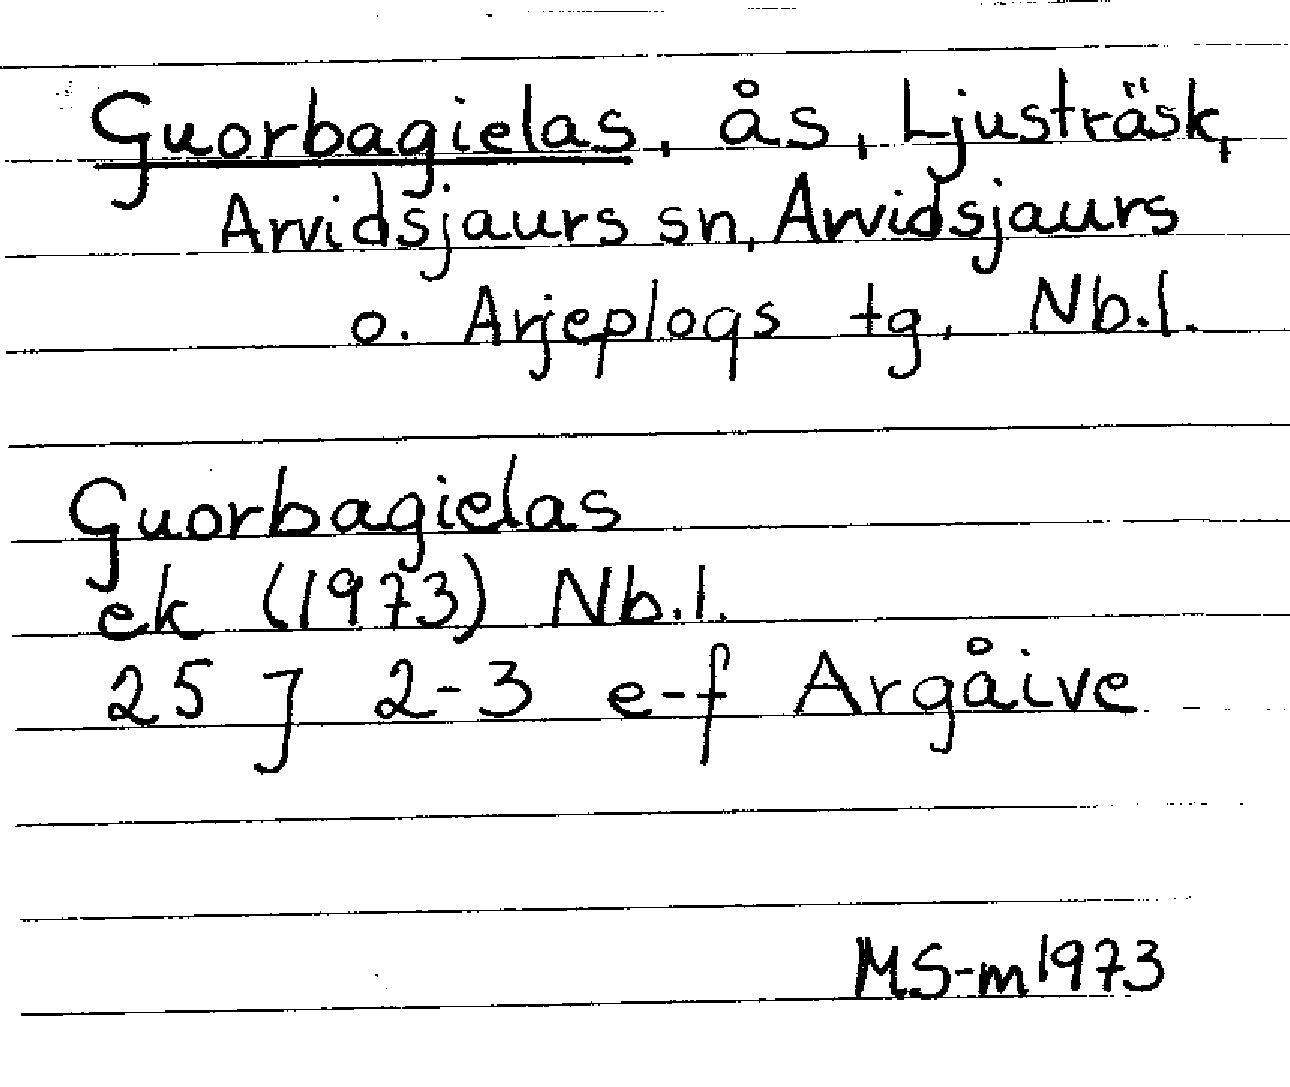 Guorbagielas, ås, Ljusträsk,
Arvidsjaurs sn, Arvidsjaurs
o. Arjeplogs tg, Nb.l.
Guorbagielas
ek (1973) Nb.l.
25 J 2-3 e-f Argåive
MS-m1973